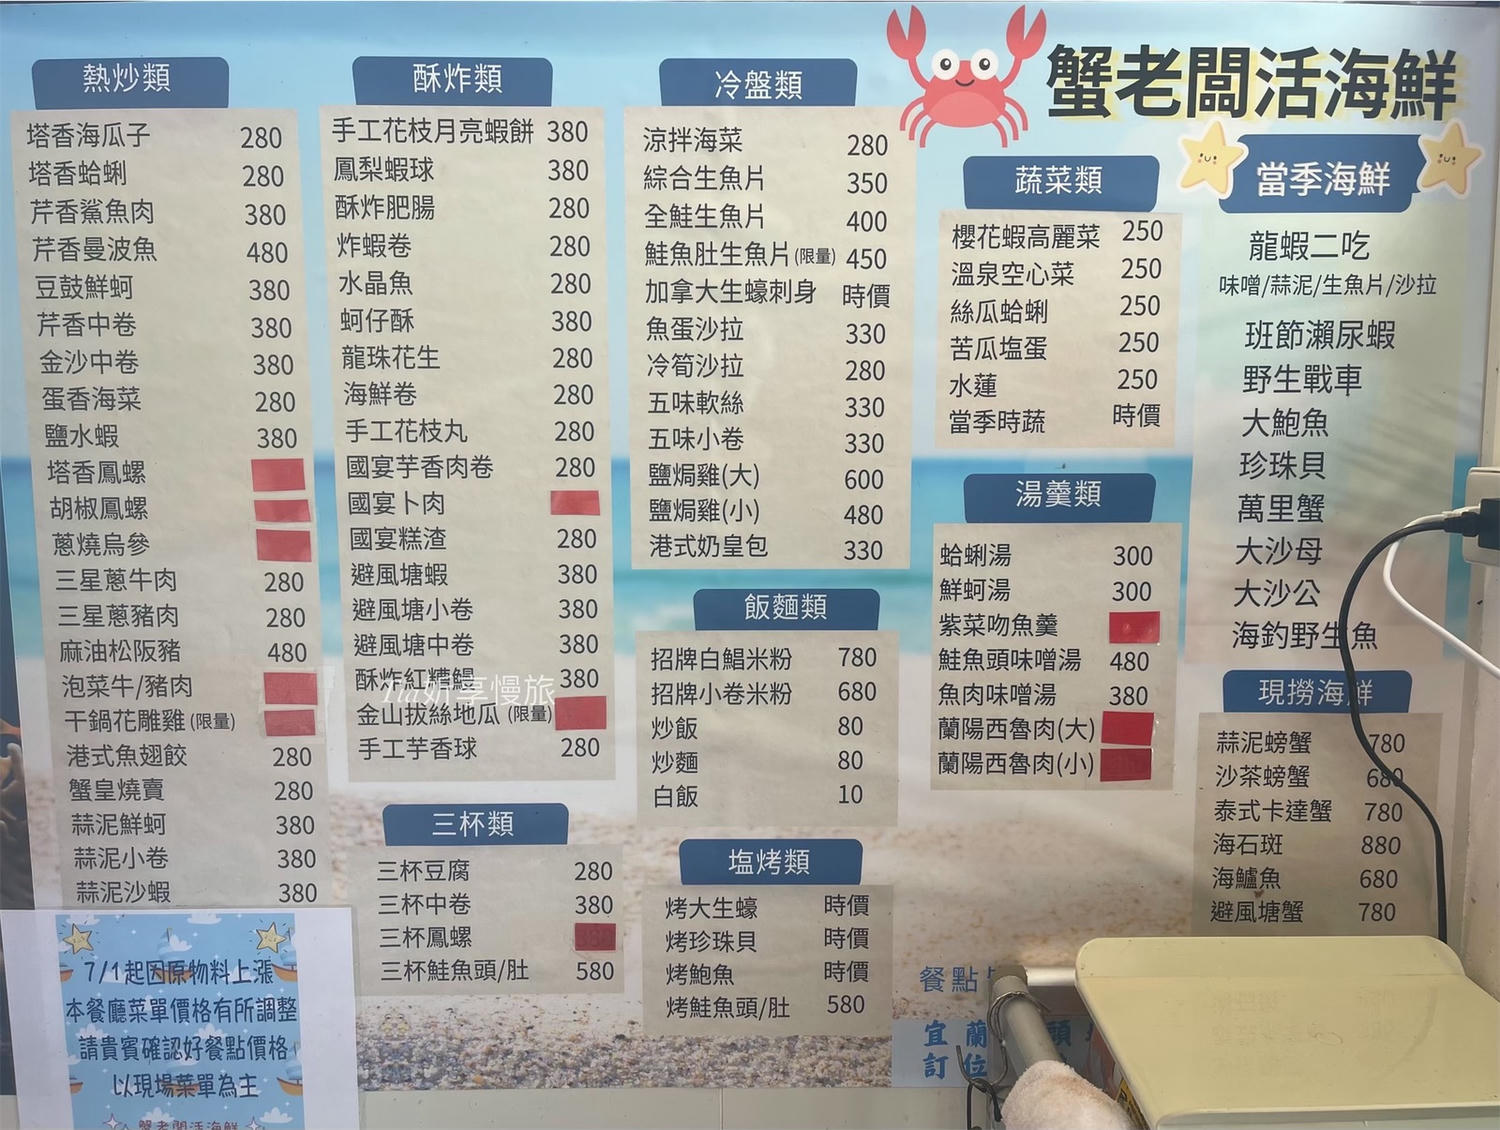 蟹老闆活海鮮
熱炒類
塔香海瓜子 280
塔香蛤蜊 280
芹香鯊魚肉 380
芹香曼波魚 480
豆鼓鮮蚵 380
芹香中卷 380
金沙中卷 380
蛋香海菜 280
鹽水蝦 380
塔香鳳螺
胡椒鳳螺
蔥燒烏參
三星蔥牛肉 280
三星蔥豬肉 280
麻油松阪豬 480
泡菜牛/豬肉
干鍋花雕雞(限量)
港式魚翅餃 280
蟹皇燒賣 280
蒜泥鮮蚵 380
蒜泥小卷 380
蒜泥沙蝦 380
7/1起因原物料上漲
本餐廳菜單價格有所調整
請貴賓確認好餐點價格
以現場菜單為主
蟹老闆活海鮮
酥炸類
手工花枝月亮蝦餅 380
鳳梨蝦球 380
酥炸肥腸 280
炸蝦卷 280
水晶魚 280
蚵仔酥 380
龍珠花生 280
海鮮卷 280
手工花枝丸 280
國宴芋香肉卷 280
國宴卜肉
國宴糕渣 280
避風塘蝦 380
避風塘小卷 380
避風塘中卷 380
酥炸紅糟鰻 380
金山拔絲地瓜(限量)
手工芋香球 280
三杯類
三杯豆腐 280
三杯中卷 380
三杯鳳螺
三杯鮭魚頭/肚 580
冷盤類
涼拌海菜 280
綜合生魚片 350
全鮭生魚片 400
鮭魚肚生魚片(限量) 450
加拿大生蠔刺身 時價
魚蛋沙拉 330
冷筍沙拉 280
五味軟絲 330
五味小卷 330
鹽焗雞(大) 600
鹽焗雞(小) 480
港式奶皇包 330
飯麵類
招牌白鯧米粉 780
招牌小卷米粉 680
炒飯 80
炒麵 80
白飯 10
塩烤類
烤大生蠔 時價
烤珍珠貝 時價
烤鮑魚 時價
烤鮭魚頭/肚 580
蔬菜類
櫻花蝦高麗菜 250
溫泉空心菜 250
絲瓜蛤蜊 250
苦瓜塩蛋 250
水蓮 250
當季時蔬 時價
湯羹類
蛤蜊湯 300
鮮蚵湯 300
紫菜吻魚羹
鮭魚頭味噌湯 480
魚肉味噌湯 380
蘭陽西魯肉(大)
蘭陽西魯肉(小)
當季海鮮
龍蝦二吃
味噌/蒜泥/生魚片/沙拉
班節瀨尿蝦
野生戰車
大鮑魚
珍珠貝
萬里蟹
大沙母
大沙公
海釣野生魚
現撈海鮮
蒜泥螃蟹 780
沙茶螃蟹 680
泰式卡達蟹 780
海石斑 880
海鱸魚 680
避風塘蟹 780
餐點
宜蘭 頭
訂位